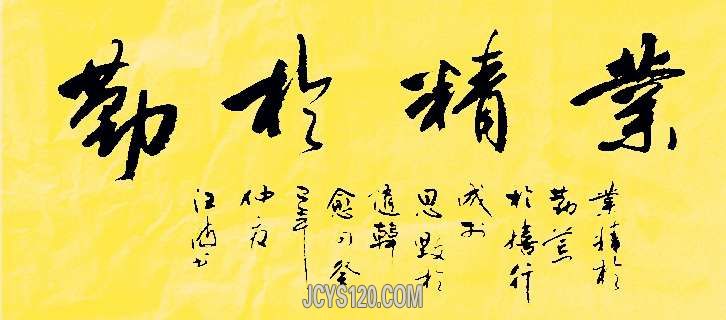 業精於勤
業精於
勤荒
於嬉行
成於
思毁於
随韓
愈句癸
巳年
仲夏
江
JCYS120.COM